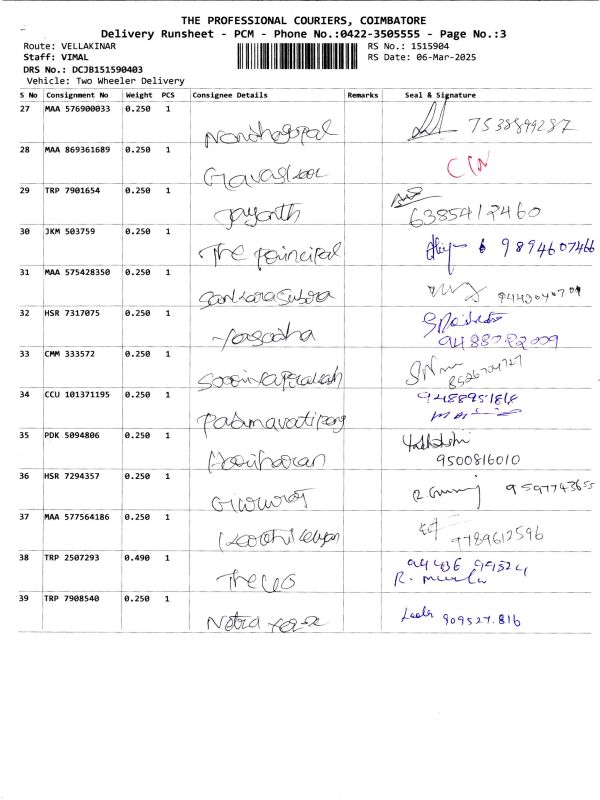 THE PROFESSIONAL COURIERS, COIMBATORE
Delivery Runsheet - PCM - Phone No.:0422-3505555 - Page No.:3
Route: VELLAKINAR
RS No.: 1515904
Staff: VIMAL
RS Date: 06-Mar-2025
DRS No.: DCJB151590403
Vehicle: Two Wheeler Delivery
S No Consignment No Weight PCS Consignee Details Remarks Seal & Signature
27 MAA 576900033 0.250 1 Nandhagopal 7538899287
28 MAA 869361689 0.250 1
29 TRP 7901654 0.250 1 Jayanth 6385412460
30 JKM 503759 0.250 1 The Principal 9894607466
31 MAA 575428350 0.250 1 Sankarasubra
32 HSR 7317075 0.250 1 Yasodha
33 CMM 333572 0.250 1 8526704727
34 CCU 101371195 0.250 1 9488951818
35 PDK 5094806 0.250 1 Hariharan 9500816010
36 HSR 7294357 0.250 1 9597743655
37 MAA 577564186 0.250 1 9789612596
38 TRP 2507293 0.490 1
39 TRP 7908540 0.250 1 909527.816